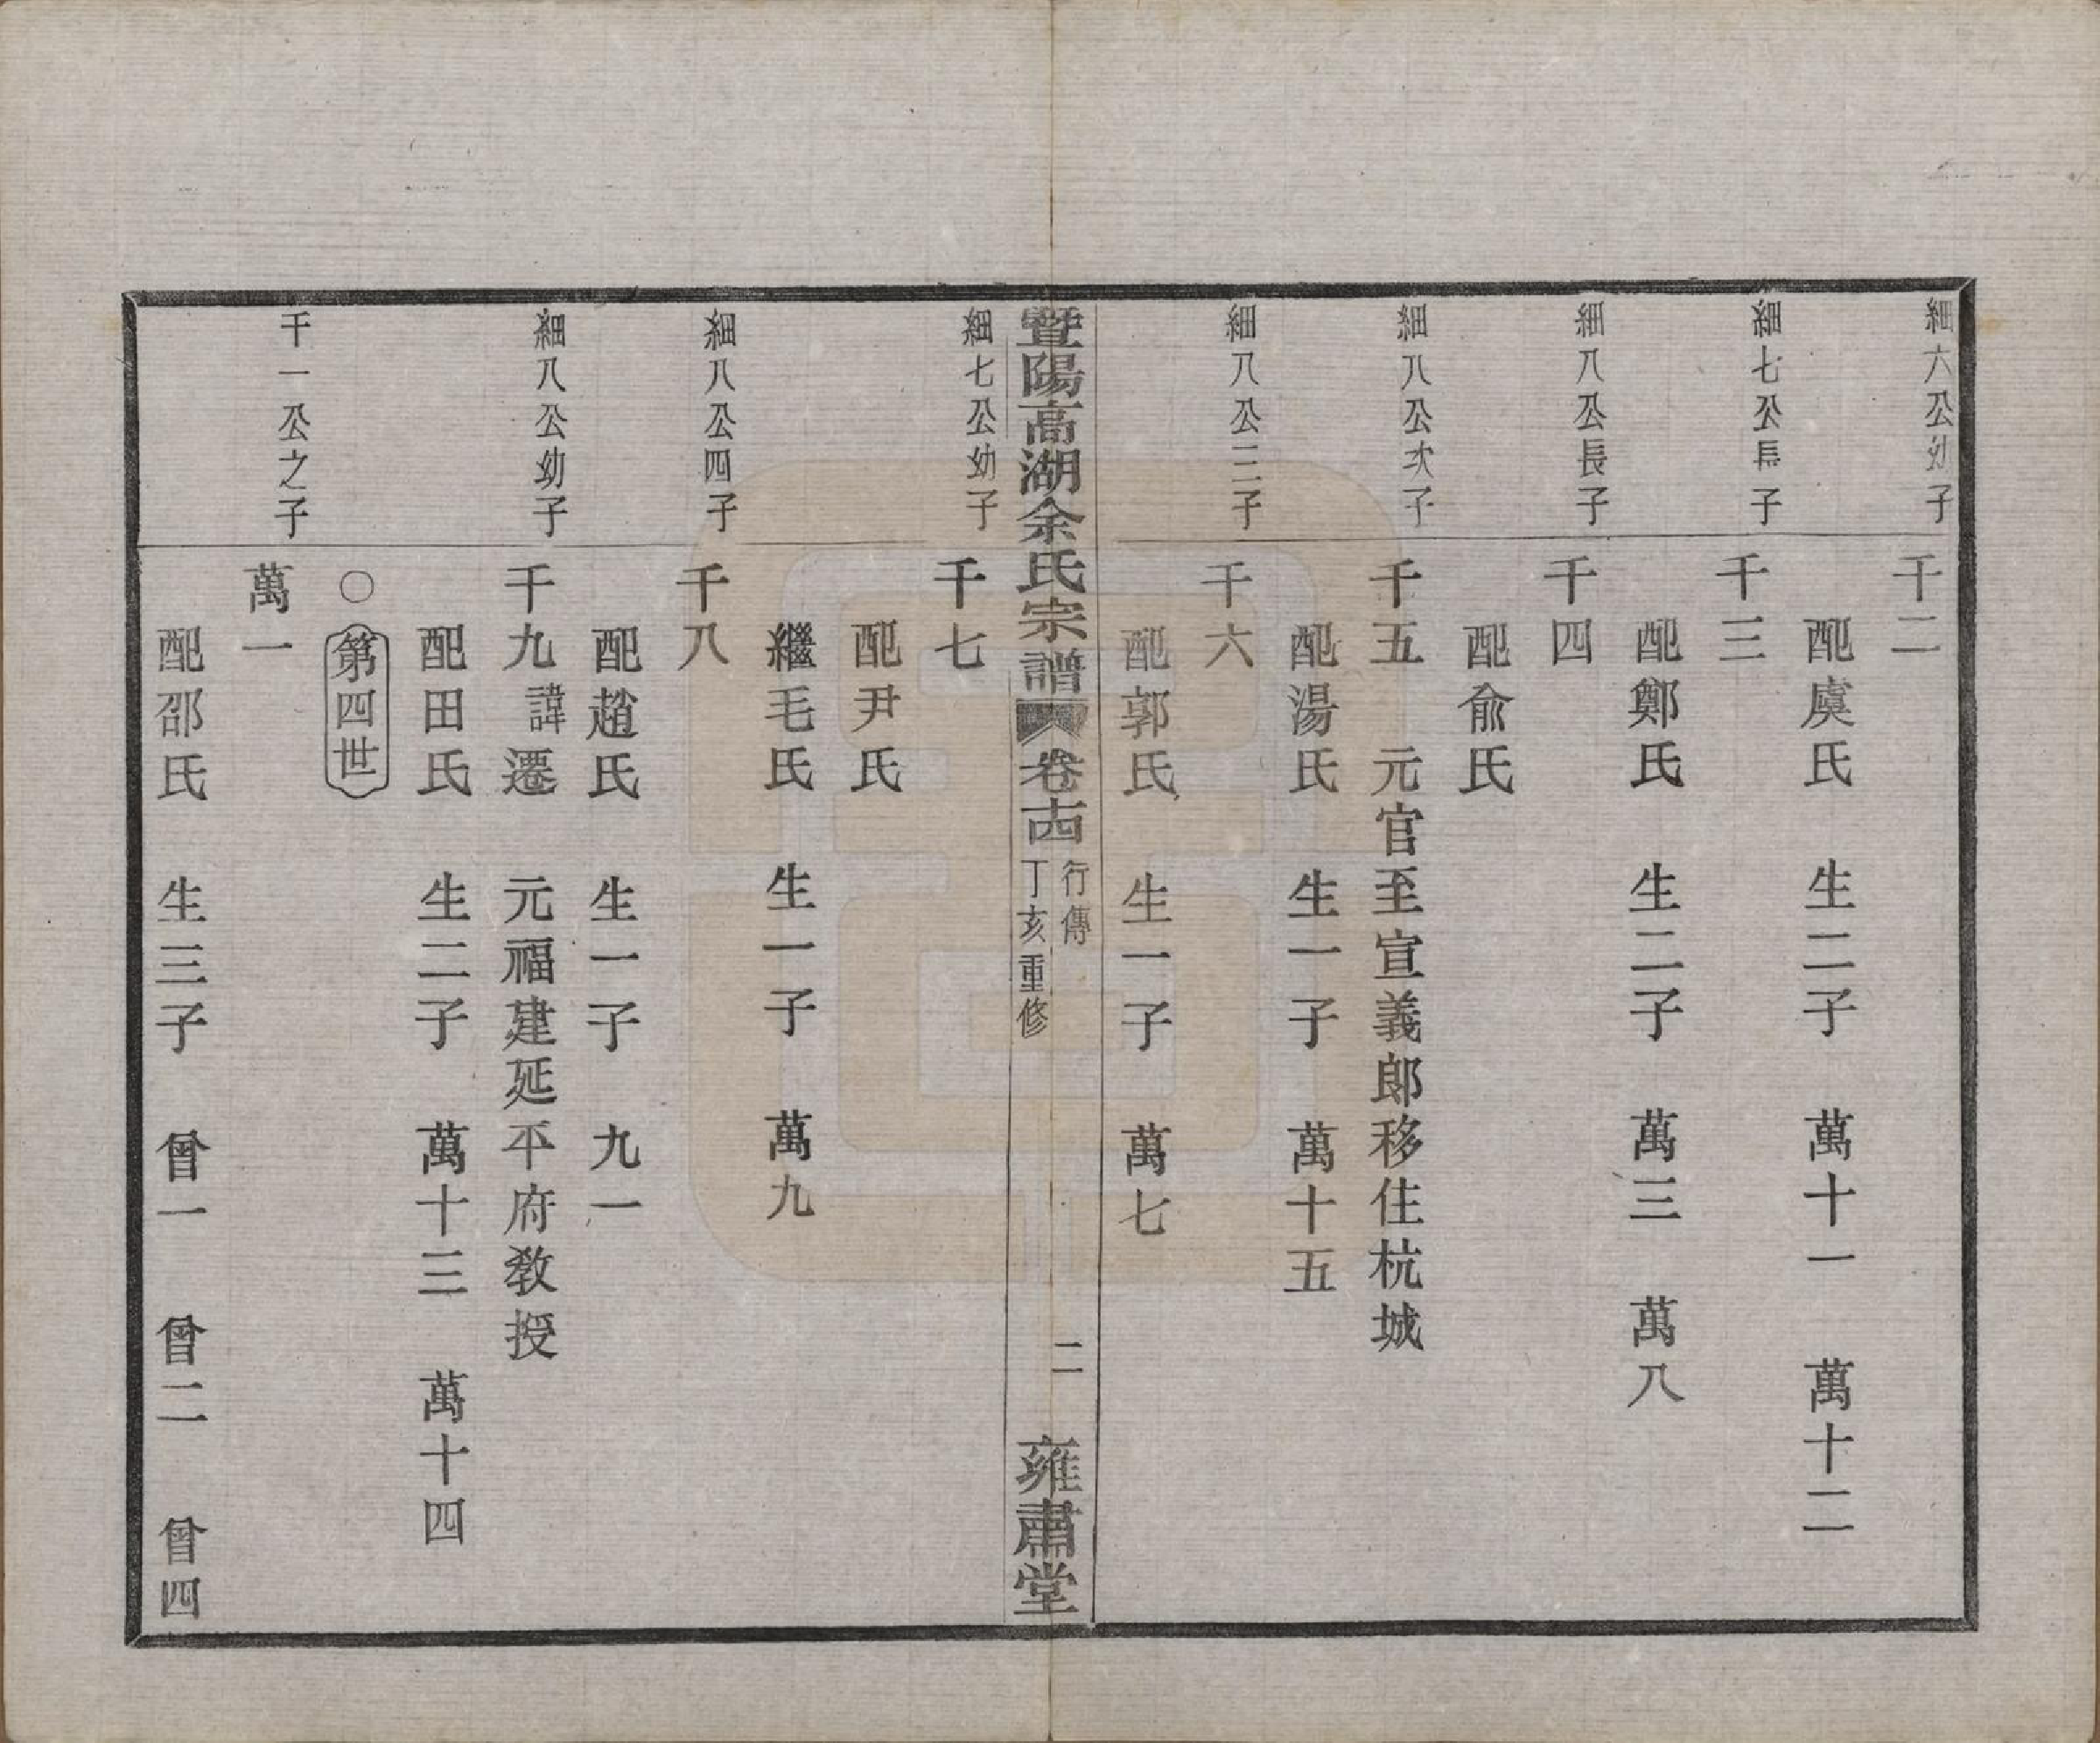 細六公幼子
千二
配虞氏　生二子　萬十一　萬十二
細七公長子
千三
配鄭氏　生二子　萬三　萬八
細八公長子
千四
配俞氏
細八公次子
千五　元官至宣義郎移住杭城
配湯氏　生一子　萬十五
細八公三子
千六
配郭氏　生一子　萬七
暨陽高湖余氏宗譜　卷十四　行傳　丁亥重修　二　雍肅堂
細七公幼子
千七
配尹氏
繼毛氏　生一子　萬九
細八公四子
千八
配趙氏　生一子　九一
細八公幼子
千九諱遷　元福建延平府教授
配田氏　生二子　萬十三　萬十四
○第四世
千一公之子
萬一
配邵氏　生三子　曾一　曾二　曾四